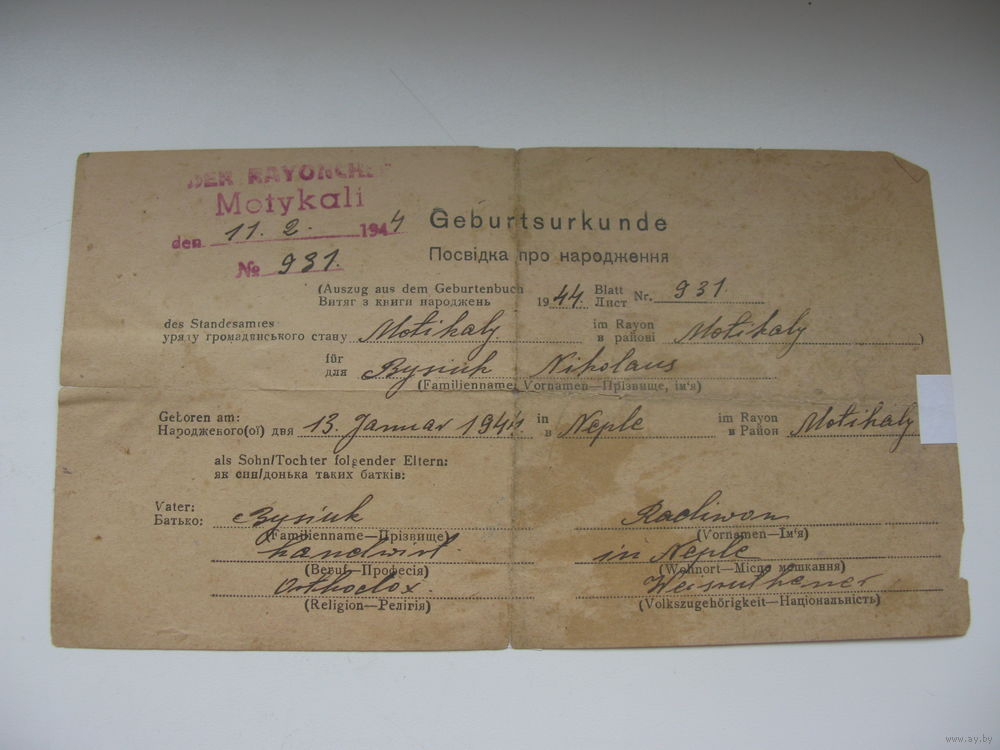 DER RAYONCHEF
Motykali
den 11. 2. 1944
№ 931.
Geburtsurkunde
Посвідка про народження
(Auszug aus dem Geburtenbuch
Витяг з книги народжень 1944. Blatt Лист Nr. 931.
des Standesamtes im Rayon
уряту громадянського стану Motikaly в районі Motikaly )
für
для Bysiuk Nikolaus
(Familienname, Vornamen—Прізвище, ім'я)
Geboren am: in im Rayon
Народженого(ої) дня 13. Januar 1944 в Neple в Район Motikaly
als Sohn/Tochter folgender Eltern:
як син/донька таких батків:
Vater:
Батько: Bysiuk Radiwon
(Familienname—Прізвище) (Vornamen—Ім'я)
Landwirt. in Neple
(Beruf—Професія) (Wohnort—Місце мешкання)
Orthodox. Weisruthener
(Religion—Релігія) (Volkszugehörigkeit—Національність)
www.ay.by